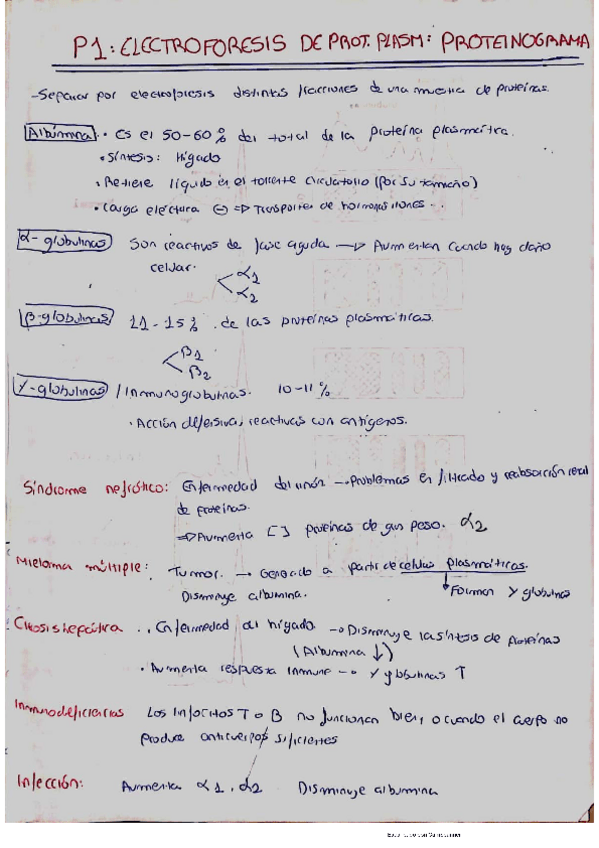 P1: ELECTROFORESIS DE PROT. PLASM: PROTEINOGRAMA
-Separar por electroforesis distintas fracciones de una muestra de proteínas.
Albúmina • Es el 50-60% del total de la proteína plasmática.
• Síntesis: Hígado
• Retiene líquido en el torrente circulatorio (por su tamaño)
• Carga eléctrica ⊖ ⇒ Transportes de hormonas, iones...
α-globulinas Son reactivos de fase aguda → Aumentan cuando hay daño
celular.
α1
α2
β-globulinas 11-15% de las proteínas plasmáticas.
β1
β2
γ-globulinas / Inmunoglobulinas. 10-11%
• Acción defensiva, reactivas con antígenos.
Síndrome nefrótico: Enfermedad del riñón → Problemas en filtrado y reabsorción renal
de proteínas.
⇒ Aumenta [ ] proteínas de gran peso. α2
Mieloma múltiple: Tumor. → Generado a partir de celulas plasmáticas.
Disminuye albumina. Forman γ globulinas
Cirrosis hepática .. Enfermedad del hígado → Disminuye la síntesis de proteínas
(Albumina ↓)
• Aumenta respuesta inmune → γ globulinas ↑
Inmunodeficiencias Los linfocitos T o B no funcionan bien, o cuando el cuerpo no
produce anticuerpos suficientes
Infección: Aumenta α1, α2 Disminuye albumina